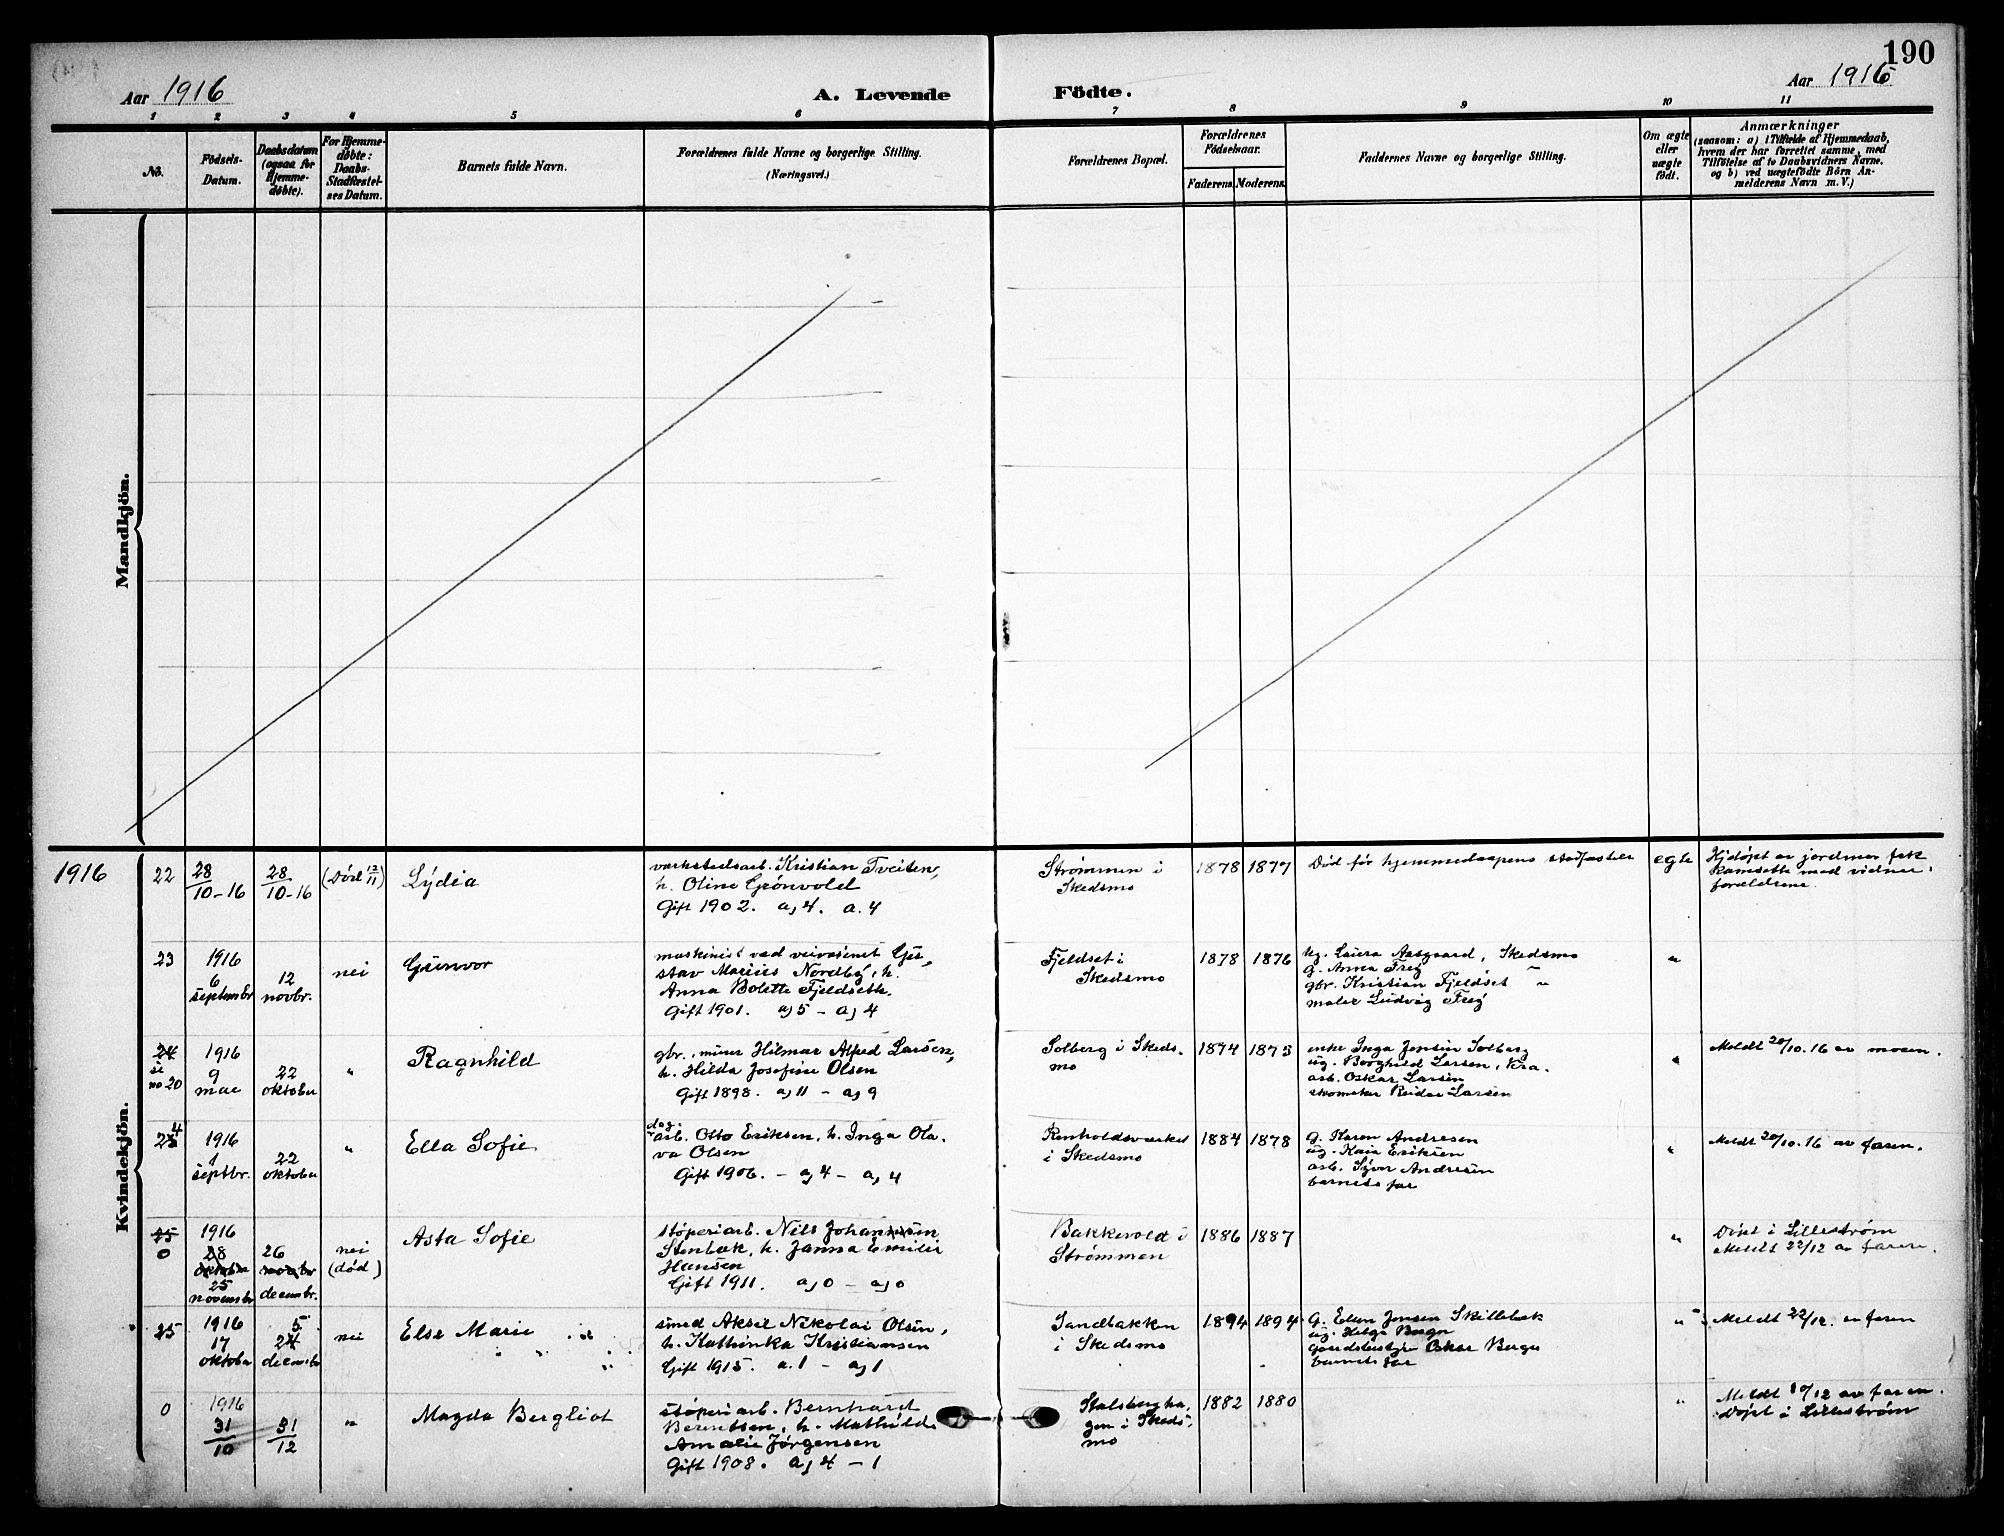 190
Aar 1916
A. Levende
Födte.
Aar 1916
1 2 3 4 5 6 7 8 9 10 11
No.
Födsels-
Datum.
Daabsdatum
(ogsaa for
Hjemme-
døbte).
For Hjemme-
døbte:
Daabs-
Stadfæstel-
ses Datum.
Barnets fulde Navn.
Forældrenes fulde Navne og borgerlige Stilling.
(Næringsvei.)
Forældrenes Bopæl.
Forældrenes
Födselsaar.
Faderens. Moderens.
Faddernes Navne og borgerlige Stilling.
Om ægte
eller
uægte
födt.
Anmærkninger
(saasom: a) i Tilfælde af Hjemmedaab,
hvem der har forrettet samme, med
Tilföielse af to Daabsvidners Navne.
og b) ved uægtefödte Börn An-
melderens Navn m. V.)
Mandkjön.
Kvindekjön.
1916
22
28
10-16
28
10-16
(Død 12/11)
Lydia
værkstedsarb. Kristian Tveiten,
h. Oline Grønvold
Gift 1902. a, 4. a. 4
Strømmen i
Skedsmo
1878 1877
Død før hjemmedaapens stadfæstelse
egte
Hjdøpt av jordmor frk
med vidner
forældrene.
23
1916
6
septembr
12
novbr.
nei
Gunvor
maskinist ved veivæsenet Gu,
stav Marius Nordby, h.
Anna Bolette Fjeldseth.
Gift 1901. a, 5 - a, 4
Fjeldset i
Skedsmo
1878 1876
Aasgaard, Skedsmo
g. Anna Frey
gbr. Kristian Fjeldset "
maler Ludvig Frey
"
24
se
no 20
1916
9
mai
22
oktober
"
Ragnhild
gbr., murer Hilmar Alfred Larsen,
h. Hilda Josefine Olsen
Gift 1898. a, 11 - a, 9
Solberg i Skeds-
mo
1874 1873
enke Inga Jensen Solberg
ug. Borghild Larsen, Kra.
arb. Oskar Larsen
skomaker Reidar Larsen
"
Meldt 20/10.16 av moren.
4
25
1916
1
septbr.
22
oktober
"
Ella Sofie
dag-
arb. Otto Eriksen, h. Inga Ola-
va Olsen
Gift 1906. - a, 4 - a, 4
Renholdsverket
i Skedsmo
1884 1878
g. Karen Andresen
ug. Kaia Eriksen
arb. Syver Andresen
barnets far
"
Meldt 20/10.16 av faren.
25
0
1916
28
oktober
25
novembr
26
novbr
decembr.
nei
(død)
Asta Sofie
støperiarb. Nils Johansen
Stenbæk, h. Janna Emilie
Hansen
Gift 1911. a, 0 - a, 0
Bakkevold i
Strømmen
1886 1887
"
Døpt i Lillestrøm
Meldt 22/12 av faren.
25
1916
17
oktober
5
24
decembr
nei
Else Marie
smed Aksel Nikolai Olsen,
h. Kathinka Kristiansen
Gift 1915. a. 1 - a, 1
Sandbakken
i Skedsmo
1894 1894
g. Ellen Jensen Skillebæk
ug. Helga Berger
gaardsbestyrer Oskar Berger
barnets far
"
Meldt 22/12. av faren
0
1916
31
10
31
12
"
Magda Bergliot
støperiarb. Bernhard
Berentsen, h. Mathilde
Amalie Jørgensen
Gift 1908. a, 4 - 1
Stalsbergha,
gen i Skeds-
mo
1882 1880
"
Meldt 10/12 av faren.
Døpt i Lillestrøm